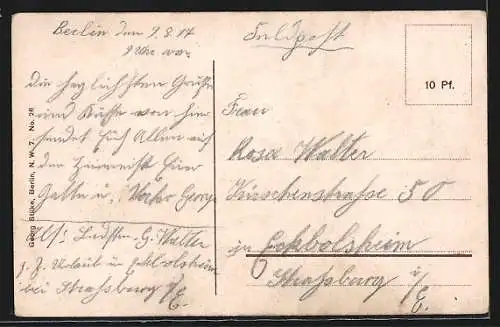 Berlin den 9.8.14
9 Uhr vor.
die herzlichsten Grüße
und Küsse von hier
sendet Euch Allen auf
der Heimreise Euer
Gatte u. Vater Georg
Abs: G. Walter
z. Z. Urlaub in Eckbolsheim
bei Strassburg i/E.
Georg Stilke, Berlin, N. W. 7. No. 26
Feldpost
10 Pf.
Frau
Rosa Walter
Kirschenstrasse 50
in Eckbolsheim
Strassburg i/E.